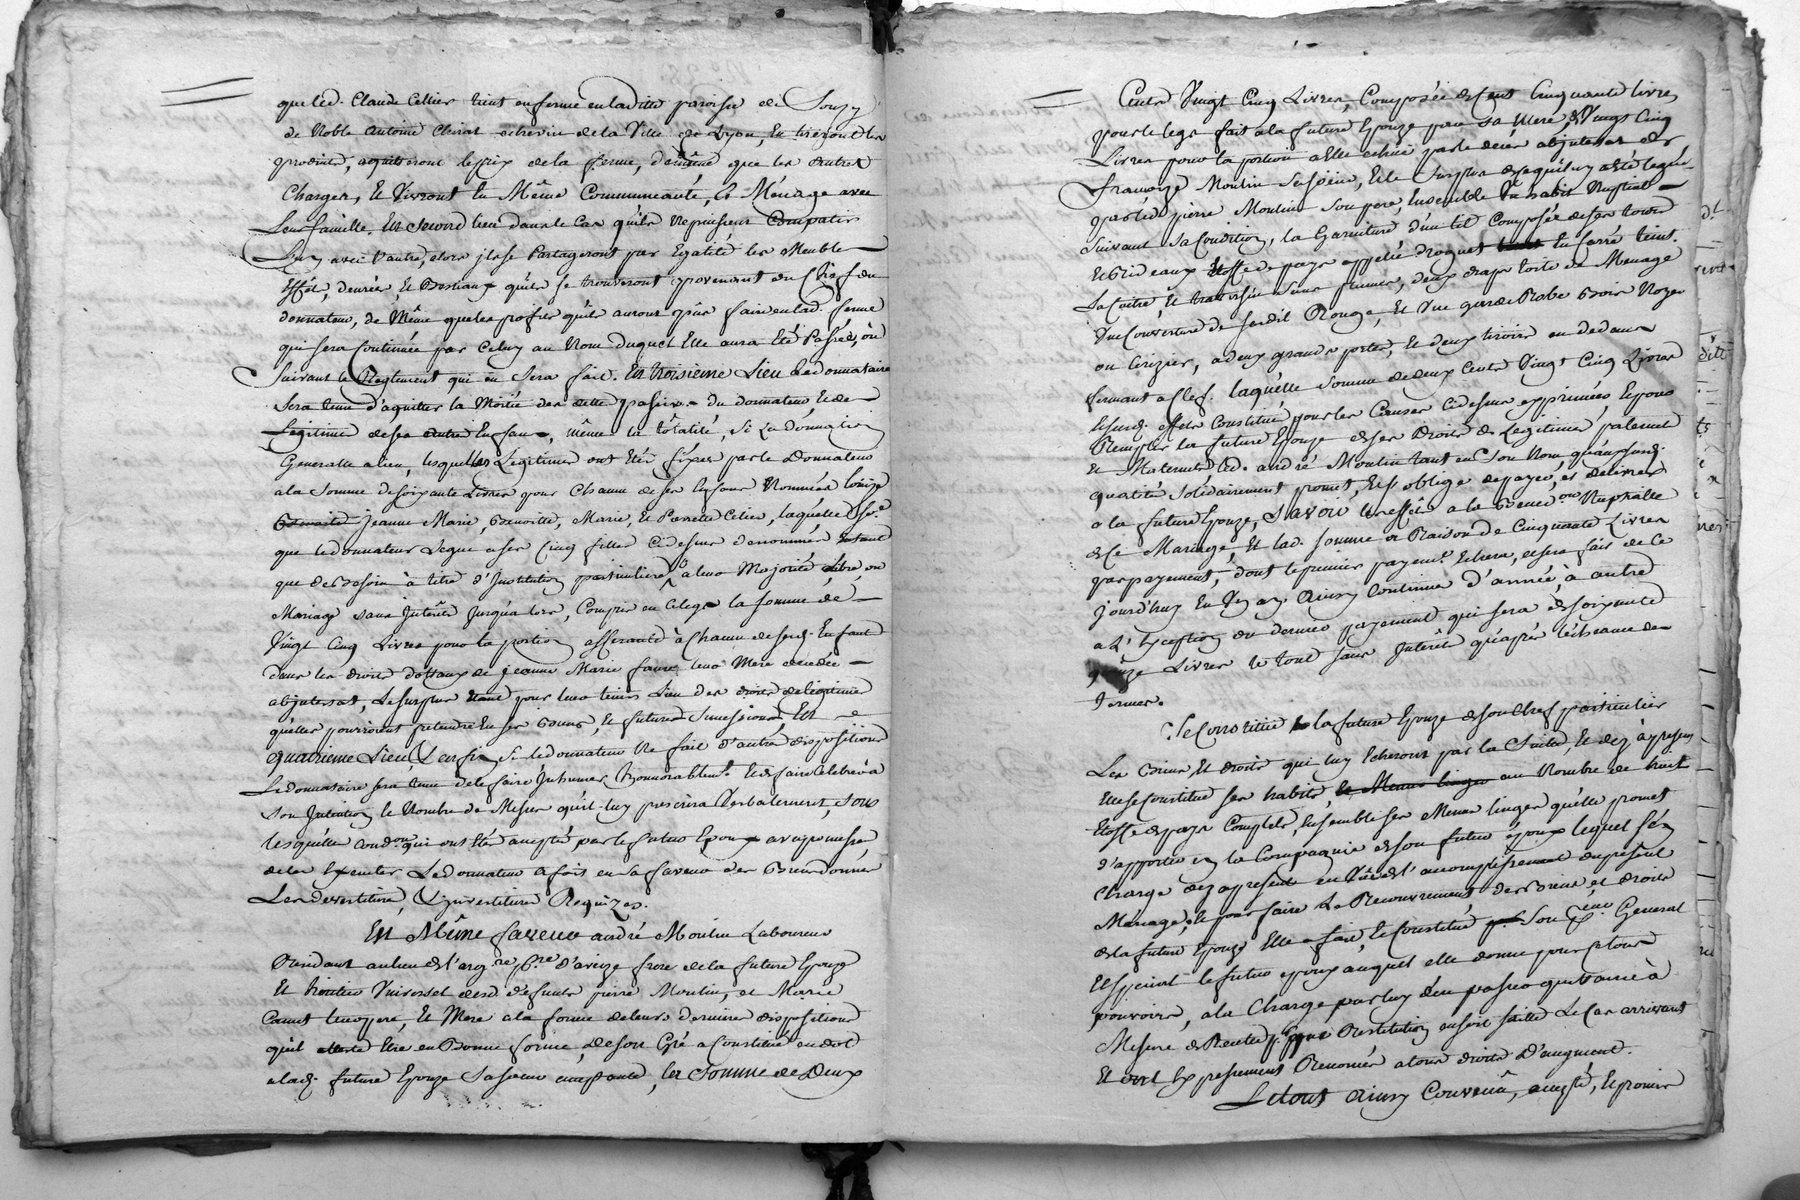 que led. Claude Cellier tient en ferme en laditte paroisse de Souzy
de Noble Antoine Clerat echevin de la Ville de Lyon, En tireront les
produits, aquiteront le prix de la ferme, de même que les Autres
Charges, Et Vivront En Même Communeauté, & Ménage avec
Leur famille, En Second lieu dans le Cas qu'ils Ne puissent Compatir
L'un avec l'autre, alors ils se Partageront par Egalité les Meubles
Effets, denrées, Et Bestiaux qu'ils se trouveront provenants du Chef du
donnateur, de Même que les profits qu'ils auront pû faire en lad. ferme
qui sera Continuée par Celuy au Nom duquel Elle aura Eté Passée, où
Suivant le Reglement qui en Sera fait. En troisieme Lieu Le donnataire
Sera tenu d'aquiter la Moitié des dettes passives du donnateur, Et de
Legitime de ses autres Enfans, même la totalité, Si La donnation
Generalle a lieu, lesquelles Legitimes ont Eté fixées par le Donnateur
a la Somme de soixante Livres pour Chacun de ses Enfans Nommées Louise
Jeanne Marie, Benoitte, Marie, Et Pierrette Celier, laquelle Som.e
que le donnateur Legue a ses Cinq filles Cidessus denommées autant
que de besoin à titre d'Institution particuliere, a leur Majorité Libre, ou
Mariage sans Interêts Jusqu'a lors, Compris en Ce legs la somme de
Vingt Cinq Livres pour la portion afferante à Chacun de sesd. Enfants
dans les droits dottaux de Jeanne Marie favre leur Mere decedée
abjntestat, Le surplus Etant pour leur tenir Lieu des droits de legitime
qu'elles pourroient pretendre En ses biens, Et futures Successions, En
quatrieme Lieu, Enfin, Si le donnateur Ne fait d'autre dispositions
Le donnataire sera tenu de le faire Inhumer honnorablem.t Et de faire Celebrer a
Son Intention le Nombre de Messes qu'il luy prescrira Verbalement, Sous
lesquelles Condon. qui ont Eté acceptées par le futur Epoux avec promesse
de les Executer Le donnateur a fait en sa faveur des Biens donnés
Les devestitures, & Jnvestitures Requizes.
En Même faveur andré Moulin Laboureur
Residant au lieu de l'arg.re p.sse d'aveize frere de la future Epouze
Et heritier Universel desd. defunts pierre Moulin, et Marie
leur pere, Et Mere a la forme de leurs derniere dispositions
qu'il atteste Etre en Bonne forme, de son Gré a Constitué en dot
a lad. future Epouze Sa sœur acceptante, la Somme de Deux
Cents Vingt Cinq Livres, Composée de Cent Cinquante livres
pour le legs fait a la future Epouze par Sa Mere & Vingt Cinq
Livres pour la portion a Elle echüe par le deces abjntestat de
françoize Moulin Sa sœur, Et le surplus de ce qui luy a été legué
par led. pierre Moulin Son pere, Ensemble Un habit Nuptial
Suivant Sa Condition, la Garniture d'un lit Composée de ses tours
Et Rideaux Etoffe de pays appellée droguet En serré teint.
La Coitre, Et traversin d'une plumes, deux draps toile de Menage
Une Couverture de Serdil Rouge, Et Une garde Robe bois Noyer
ou Cerizier, a deux grandes portes, Et deux tiroirs en dedans
fermant a Clef. laquelle somme de deux Cents Vingt Cinq Livres
Et susd. effets Constitués pour les Causes Cidessus exprimées Et pour
Remplir la future Epouze de ses droits de Legitime paternel
Et Maternel led. andré Moulin tant en Son Nom qu'en susd.
qualité Solidairement promet, Et s'oblige de payer, et delivrer
a la future Epouze, Savoir les effets a la Benediction Nuptialle
de Ce Mariage, Et lad. somme a Raison de Cinquante Livres
par payement, dont le premier payem.t Echera, et sera fait de Ce
Jourd'huy En Un an Ainsy Continue d'année, à autre
a l'exception du dernier payement qui sera de soixante
quinze Livres le tout sans Interêts qu'après l'écheance des
Termes.
Se Constitue la future Epouze de son Chef particulier
Les Biens, Et droits qui luy Echeront par la Suite, Et dez à present
Elle se Constitue ses habits au Nombre de huit
Etoffe de pays Complets, Ensemble ses Menus linges qu'elle promet
d'apporter en la Compagnie de son futur époux lequel s'en
Charge dez apresent en Vüe de l'accomplissement du present
Mariage, Et pour faire le Recouvrement des Biens, et droits
de la future Epouze Elle a fait, Et Constitué Son P.eur General
Et Special le futur epoux auquel elle donne pour Ce tous
pouvoirs, a la Charge par luy d'en passer quittance à
Mesure de Recette, pour Restitution en soit faitte Le Cas arrivant
Et ont Expressement Renoncés a tous droits D'augment.
Le tout Ainsy Convenû, accepté, Et promis